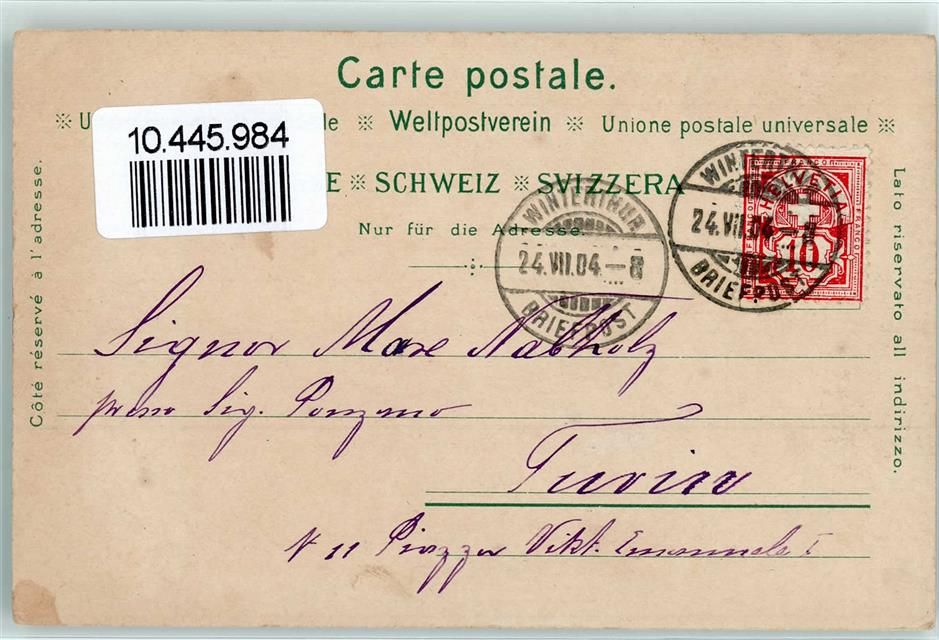 Carte postale.
※ U le ※ Weltpostverein ※ Unione postale universale ※
10.445.984
E ※ SCHWEIZ ※ SVIZZERA
Nur für die Adresse.
Côté réservé à l'adresse.
Lato riservato all indirizzo.
WINTERTHUR
24.VII.04.—8
BRIEFPOST
WINTERTHUR
24.VII.04.—8
BRIEFPOST
FRANCO
HELVETIA
FRANCO
10
Signor Marc Nabholz
presso Sig. Ponzano
Turin
N 11 Piazza Vikt. Emanuele I